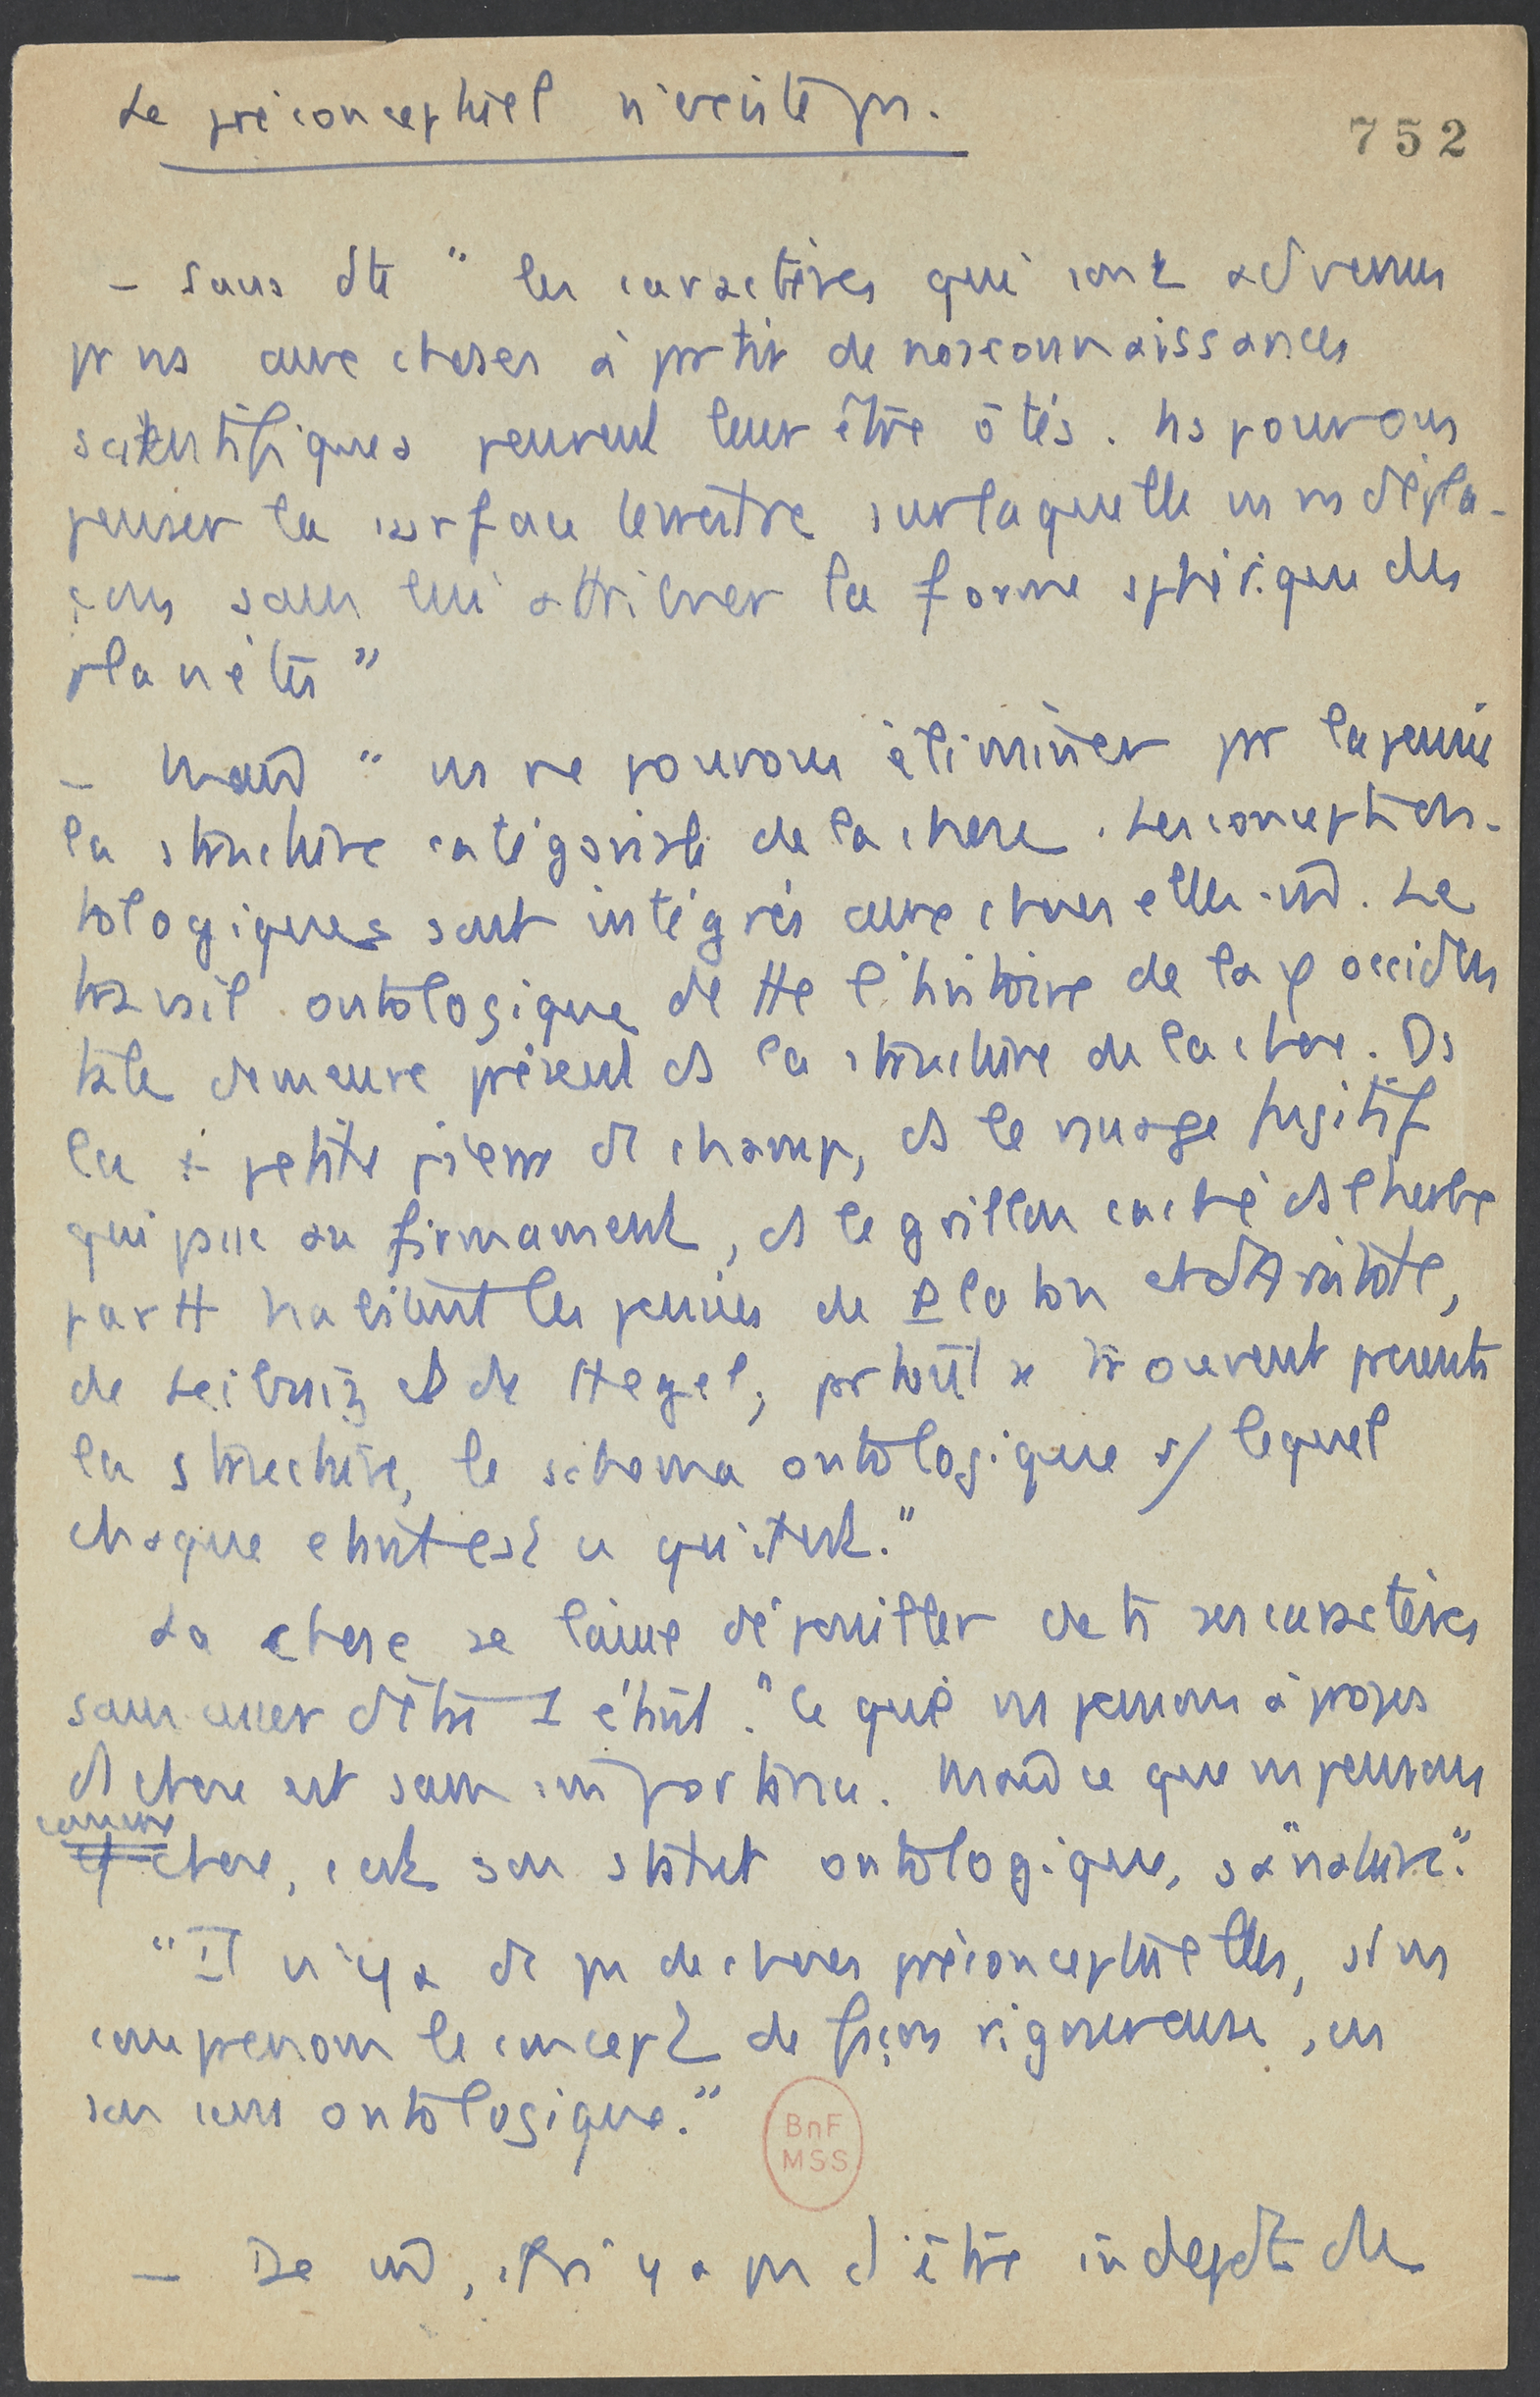 Le préconceptuel n'existe pas.
752
– Sans dte " les caractères qui sont advenus
pr ns aux choses à partir de nos connaissances
scientifiques peuvent leur être ôtés. Ns pouvons
penser la surface terrestre sur laquelle ns ns dépla-
çons sans lui attribuer la forme sphérique des
planètes "
– Mais " ns ne pouvons éliminer pr la pensée
la structure catégoriale de la chose. Les concepts on-
tologiques sont intégrés aux choses elles-m̂. Le
travail ontologique de tte l'histoire de la φ occiden
tale demeure présent ds la structure de la chose. Ds
la + petite pierre de champ, ds le nuage fugitif
qui passe au firmament, ds le grillon caché ds l'herbe
partt habitent les pensées de Platon et d'Aristote,
de Leibniz et de Hegel; partout se trouvent présents
la structure, le schema ontologique s/ lequel
chaque etant est ce qu'il est."
La chose se laisse dépouiller de ts ses caractères
sans cesser d'être 1 étant. "Ce que ns pensons à propos
d chose est sans importance. Mais ce que ns pensons
comme
chose, c'est son statut ontologique, sa "nature"."
"Il n'y a dc pas de choses préconceptuelles, si ns
comprenons le concept de façon rigoureuse, en
son sens ontologique."
BnF
MSS
– De m̂, il n'y a pas d'être indepdt de